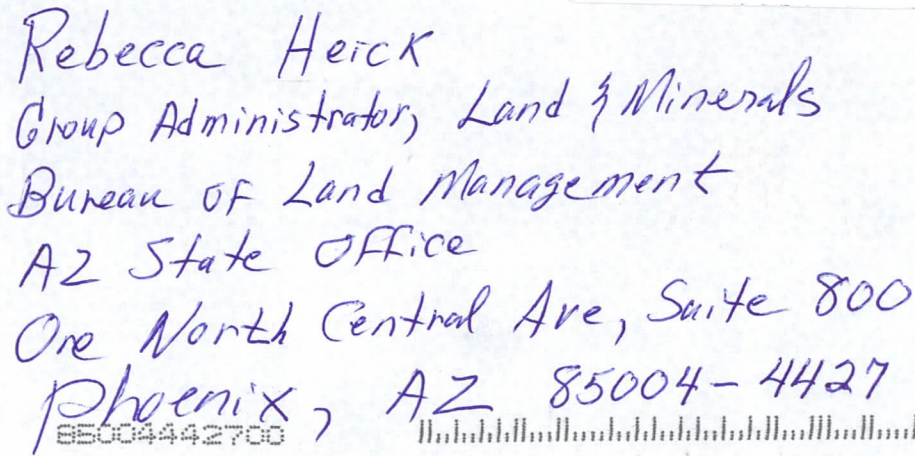 Rebecca Heick
Group Administrator, Land & Minerals
Bureau of Land Management
AZ State Office
One North Central Ave, Suite 800
Phoenix, AZ 85004-4427
85004442700